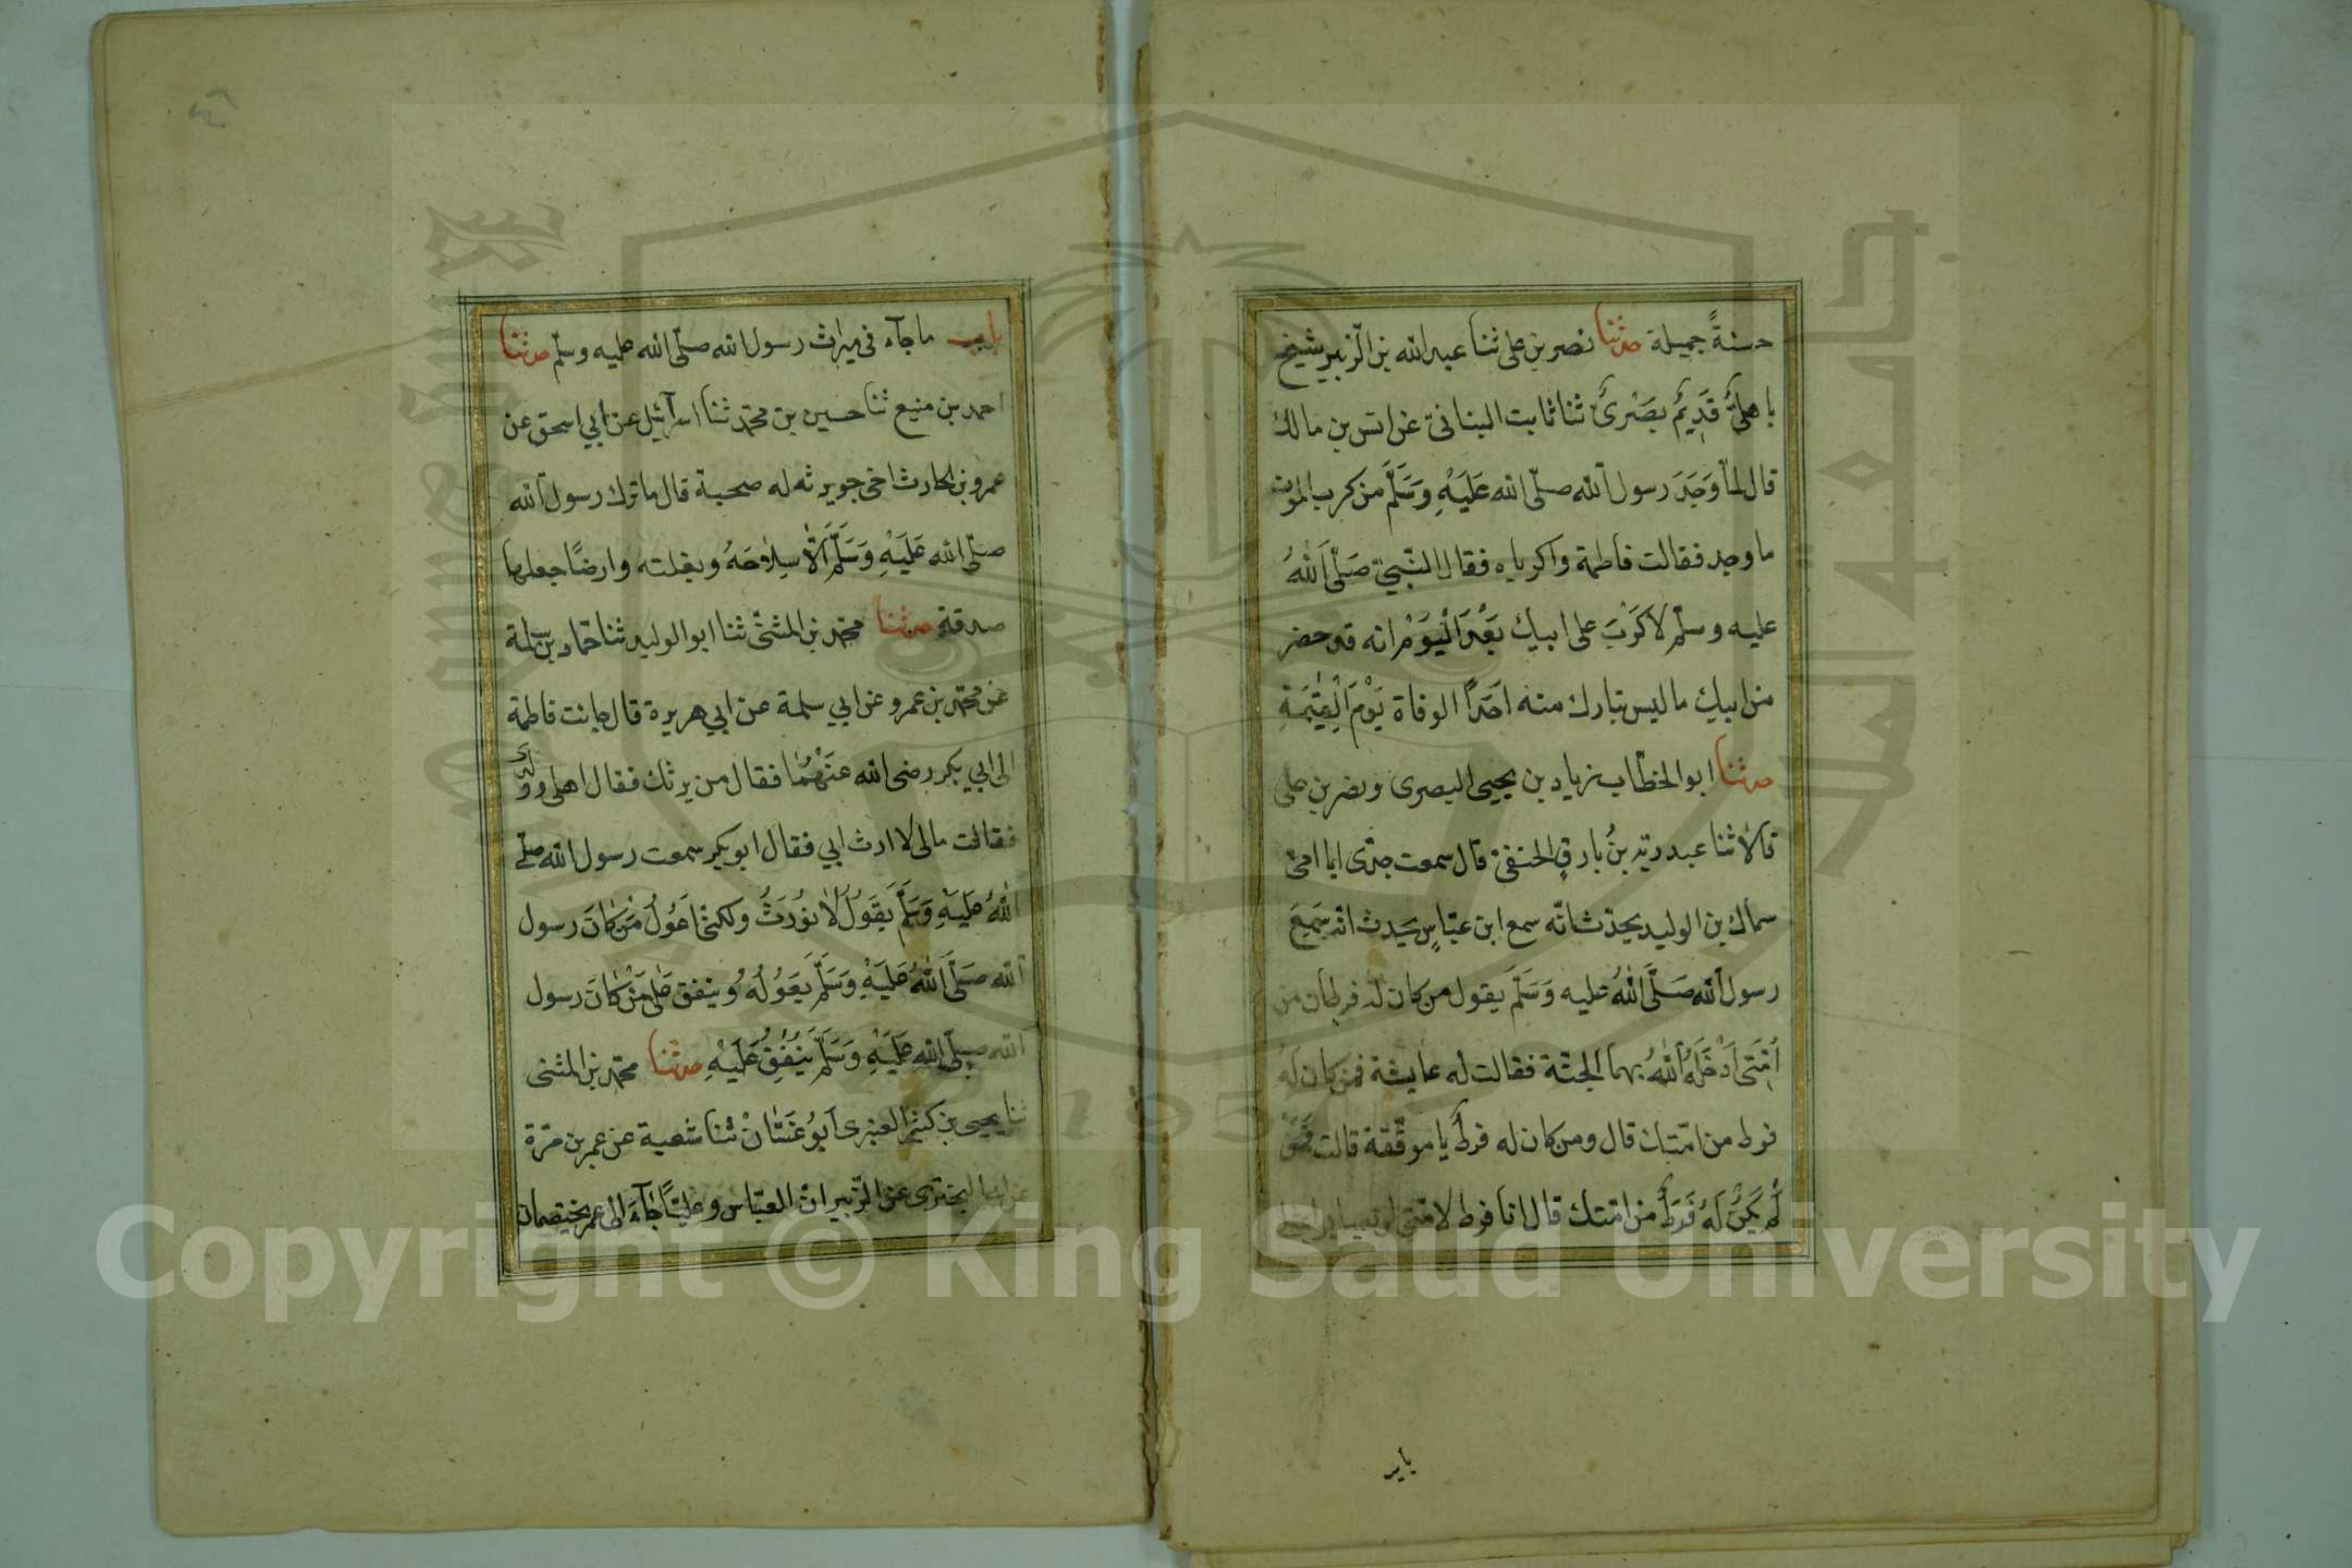 حسنةً جميلة حدثنا نصر بن على ثنا عبد الله بن الزبير شيخ
باهلىٌّ قَدِيمٌ بصَرىٌّ ثنا ثابت البنانىّ عن انس بن مالك
قال لمّا وَجَدَ رسول الله صلّى الله عَلَيْهِ وَسَلَّم من كرب الموت
ما وجد فقالت فاطمة واكرباه فقال النّبىّ صَلّى اَللهُ
عليه وسلّم لاكَرْبَ على ابيك بَعْدَ الْيَوْمِ انه قد حضر
من ابيكِ ما ليس بتارك منه اَحَدًا الوفاة يَوْمَ الْقِيٰمَةِ
حدثنا ابو الخطاب زياد بن يحيى البصرى ونصر بن على
قالا ثنا عبد ربّه بنُ بارقٍ الحنفىّ قال سمعت جدّى ابا امّى
سماك بن الوليد يحدّث انّه سمع ابن عبّاسٍ يحدث انّه سَمِعَ
رسول الله صَلَّى اَللهُ عليه وَسَلَّم يقول من كان له فرطان من
اُمَّتى اَدْخَلَهُ اَللهُ بهما الجنّة فقالت له عايشة فمن كان لَهُ
فرط من امّتك قال ومن كان له فرطٌ يا موفّقة قالت فَمَنْ
لَمْ يَكُنْ لَهُ فَرَطٌ من امّتك قال انا فرط لامّتى لن يصابوا بمثلى
باب
باب ما جآء فى ميراث رسول الله صلّى الله عليه وسلّم حدثنا
احمد بن منيع ثنا حسين بن محمّد ثنا اسرآئيل عن ابي اسحق عن
عمرو بن الحارث اخى جويرثه له صحبة قال ما ترك رسول الله
صلّى الله عَلَيْهِ وَسَلَّم اَلّا سِلاحَهُ وبغلته وارضًا جعلها
صدقة حدثنا محمّد بن المثنّى ثنا ابو الوليد ثنا حمّاد بن سلمة
عن محمّد بن عمرو عن ابي سلمة عن ابي هريرة قال جائت فاطمة
الى ابي بكر رضى الله عَنْهُمٰا فقال من يرثك فقال اهلى وولدى
فقالت مالى لا ارث ابي فقال ابو بكر سمعت رسول الله صلّى
اللهُ عَلَيْهِ وَسَلَّم يَقُولُ لاٰ نُورَثُ ولكنّى اَعُولُ مَنْ كانَ رسول
الله صَلَّى اَللهُ عَلَيْهِ وَسَلَّم يَعُولُهُ وينفق عَلٰى مَنْ كٰانَ رسول
الله صلّى الله عَلَيْهِ وَسَلَّم يُنْفِقُ عَلَيْهِ حدثنا محمّد بن المثنى
ثنا يحيى بن كثير العنبرى اَبُو غَسّٰانْ ثنا شعبة عن عمر بن مرّة
عن ابى البخترى عن الزّبير انّ العبّاس وعليًّا جٰآءَ الى عمر يختصمان
٤٦
Copyright © King Saud University